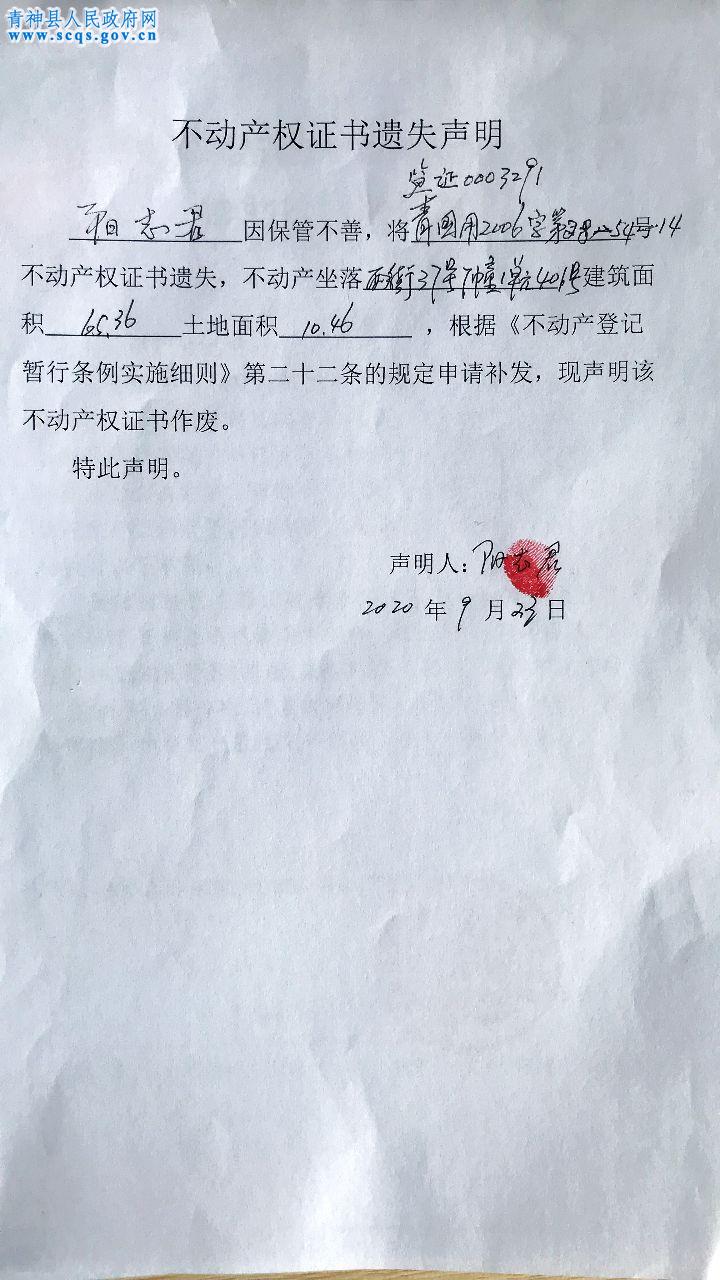 青神县人民政府网
www.scqs.gov.cn
不动产权证书遗失声明
监证0003291
阳志君因保管不善，将青国用2006字第 54号-14
不动产权证书遗失，不动产坐落西街37号1幢1单元401号建筑面
积 65.36 土地面积 10.46 ，根据《不动产登记
暂行条例实施细则》第二十二条的规定申请补发，现声明该
不动产权证书作废。
特此声明。
声明人：阳志君
2020 年 9 月 23 日